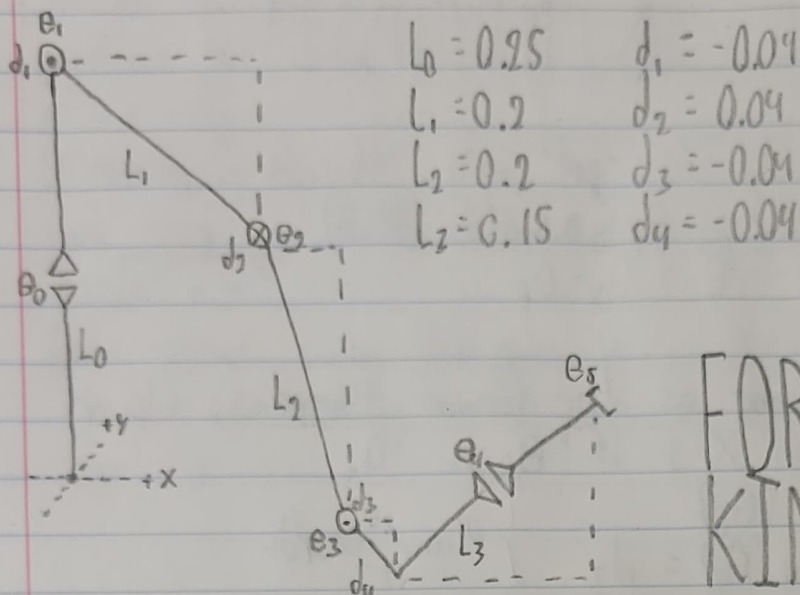 θ₁
d₁
L₁
d₂ θ₂
θ₀
L₀
+Y
+X
L₂
d₃
θ₃
d₄
L₃
θ₄
θ₅
L₀ = 0.25 d₁ = -0.04
L₁ = 0.2 d₂ = 0.04
L₂ = 0.2 d₃ = -0.04
L₂ = 0.15 d₄ = -0.04
FOR
KIN